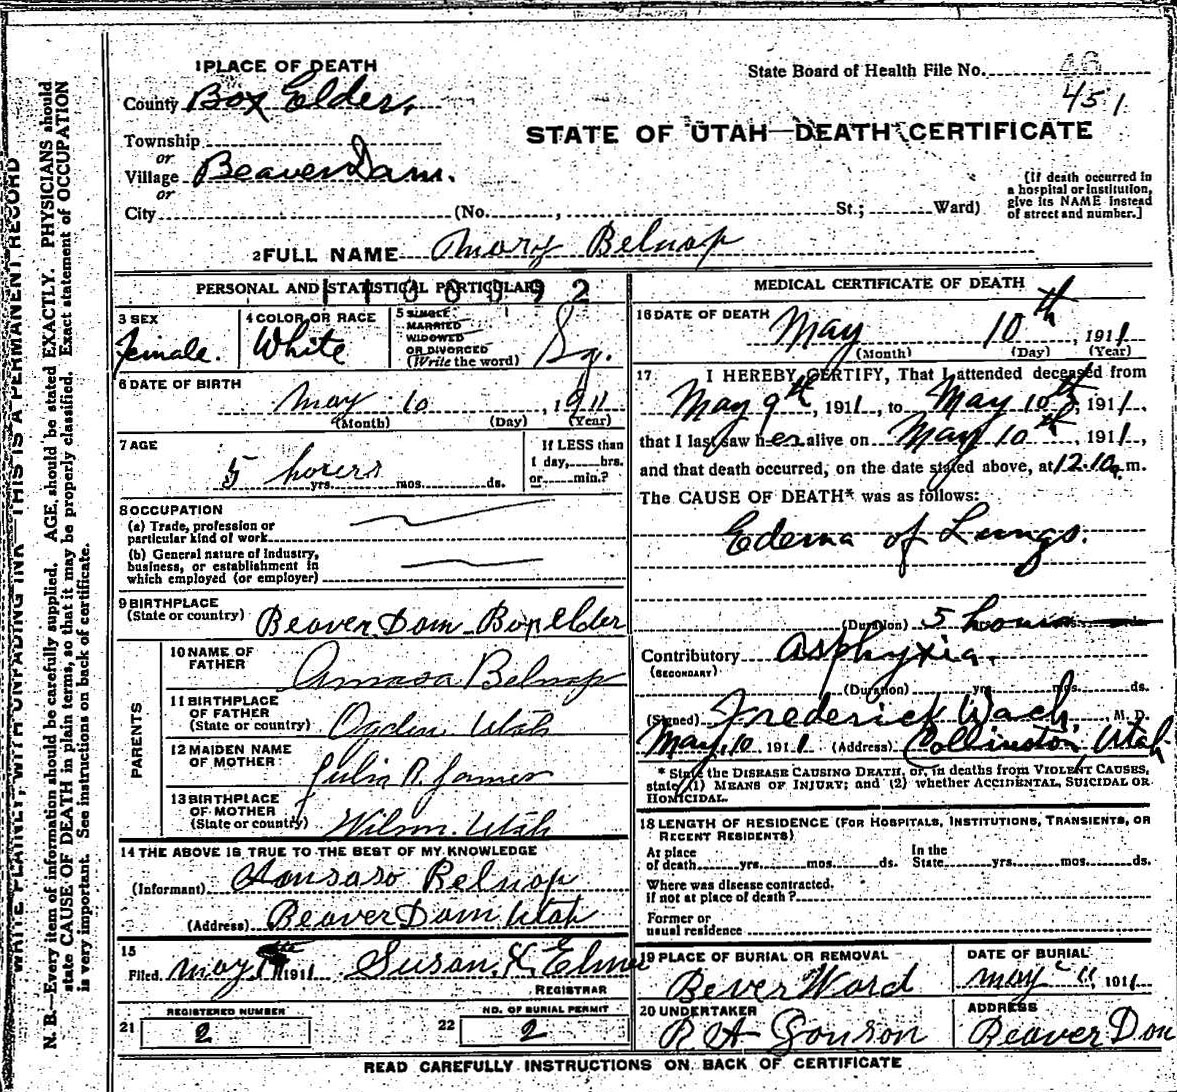 1 PLACE OF DEATH
State Board of Health File No. 46
County Box Elder.
451
STATE OF UTAH—DEATH CERTIFICATE
Township
or
Village Beaver Dam.
or
City (No. , St.; Ward)
(If death occurred in
a hospital or institution,
give its NAME instead
of street and number.]
2 FULL NAME Mary Belnap
PERSONAL AND STATISTICAL PARTICULARS
3 SEX
Female.
4 COLOR OR RACE
White
5 SINGLE
MARRIED
WIDOWED
OR DIVORCED
(Write the word)
Sg.
6 DATE OF BIRTH
May 10, 1911
(Month) (Day) (Year)
7 AGE
5 hours
yrs. mos. ds.
If LESS than
1 day, hrs.
or min.?
8 OCCUPATION
(a) Trade, profession or
particular kind of work
(b) General nature of industry,
business, or establishment in
which employed (or employer)
9 BIRTHPLACE
(State or country) Beaver Dam Box elder
PARENTS
10 NAME OF
FATHER Amasa Belnap
11 BIRTHPLACE
OF FATHER
(State or country) Ogden Utah
12 MAIDEN NAME
OF MOTHER Julia R. James
13 BIRTHPLACE
OF MOTHER
(State or country) Wilson. Utah
14 THE ABOVE IS TRUE TO THE BEST OF MY KNOWLEDGE
(Informant) Belnap
(Address) Beaver Dam Utah
15
Filed May 1911 Susan K Elmer
REGISTRAR
21 REGISTERED NUMBER
2
22 NO. OF BURIAL PERMIT
2
MEDICAL CERTIFICATE OF DEATH
16 DATE OF DEATH
May 10th, 1911
(Month) (Day) (Year)
17 I HEREBY CERTIFY, That I attended deceased from
May 9th, 1911, to May 10th, 1911,
that I last saw her alive on May 10th, 1911,
and that death occurred, on the date stated above, at 12.10 a.m.
The CAUSE OF DEATH* was as follows:
Edema of Lungs.
(Duration) 5 hours
Contributory Asphyxia.
(SECONDARY)
(Duration) yrs. mos. ds.
(Signed) Frederick Wach, M. D.
May 10 1911 (Address) Collinston, Utah
* State the DISEASE CAUSING DEATH, or, in deaths from VIOLENT CAUSES,
state (1) MEANS OF INJURY; and (2) whether ACCIDENTAL, SUICIDAL OR
HOMICIDAL.
18 LENGTH OF RESIDENCE (FOR HOSPITALS, INSTITUTIONS, TRANSIENTS, OR
RECENT RESIDENTS)
At place
of death yrs. mos. ds.
In the
State yrs. mos. ds.
Where was disease contracted,
if not at place of death?
Former or
usual residence
19 PLACE OF BURIAL OR REMOVAL
Bever Ward
DATE OF BURIAL
May 11, 1911
20 UNDERTAKER
ADDRESS
Beaver Don
READ CAREFULLY INSTRUCTIONS ON BACK OF CERTIFICATE
WRITE PLAINLY, WITH UNFADING INK—THIS IS A PERMANENT RECORD
N. B.—Every item of information should be carefully supplied. AGE should be stated EXACTLY. PHYSICIANS should
state CAUSE OF DEATH in plain terms, so that it may be properly classified. Exact statement of OCCUPATION
is very important. See instructions on back of certificate.